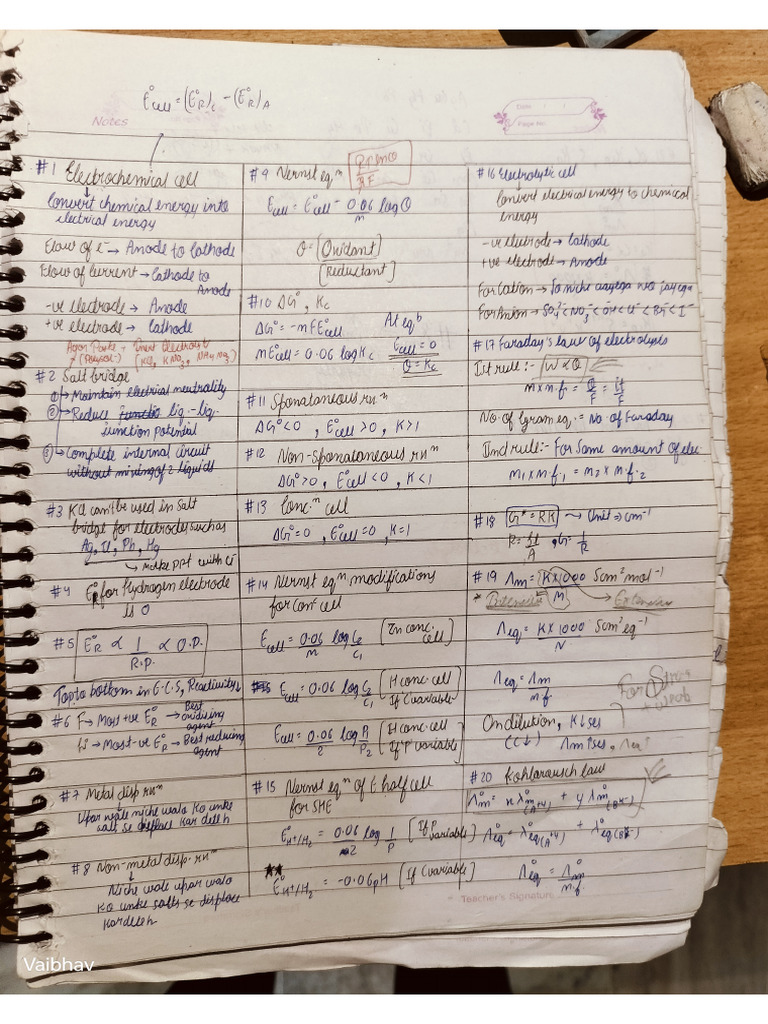 E°cell = (E°R)c - (E°R)A
Notes
Date : / /
Page No.
#1 Electrochemical cell
Convert chemical energy into
electrical energy
Flow of e⁻ → Anode to Cathode
Flow of Current → Cathode to
Anode
-ve electrode → Anode
+ve electrode → Cathode
Agar Paste + Inert Electrolyte
(KCl, KNO3, NH4NO3)
#2 Salt bridge
① → Maintain electrical neutrality
② → Reduce liq.-liq.
junction potential
③ → Complete internal circuit
without mixing of 2 liquids
#3 KCl can't be used in salt
bridge for electrodes such as
Ag, Tl, Pb, Hg
→ Make PPT with Cl⁻
#4 E°R for Hydrogen electrode
is 0
#5 E°R ∝ 1/R.P. ∝ O.P.
Top to bottom in E.C.S, Reactivity↓
#6 F → Most +ve E°R → Best
oxidising
agent
Li → Most -ve E°R → Best reducing
agent
#7 Metal disp rxnᵐ
→ Upar wale niche walo ko unke
salts se displace kar deteh
#8 Non-metal disp. rxnᵐ
→ Niche wale upar walo
ko unke salts se displace
kardeteh
#9 Nernst eqᵐ
Ecell = E°cell - 0.06/n log Q
Q = [Oxidant]
[Reductant]
#10 ΔG°, Kc
ΔG° = -nFE°cell
At eqᵇ
nE°cell = 0.06 log Kc
Ecell = 0
Q = Kc
#11 Sponataneous rxnᵐ
ΔG°<0 , E°cell >0 , K>1
#12 Non-Sponataneous rxnᵐ
ΔG°>0, E°cell <0 , K<1
#13 Conc.ᵐ cell
ΔG°=0 , E°cell =0, K=1
#14 Nernst eqᵐ modifications
for Conc cell
Ecell = 0.06/n log C2/C1 [Zn conc. cell]
Ecell = 0.06 log C2/C1 [H conc. cell
If C variable]
Ecell = 0.06/2 log P1/P2 [H conc. cell
If 'P' variable]
#15 Nernst eqᵐ of E half cell
for SHE
E°H+/H2 = 0.06/2 log 1/P [If P
variable]
★★ E°H+/H2 = -0.06pH [If C variable]
#16 Electrolytic cell
Convert electrical energy to chemical
energy
-ve electrode → Cathode
+ve electrode → Anode
For Cation → Jo niche aayega wo jayega
For Anion → SO4²⁻<NO3⁻<OH⁻<Cl⁻<Br⁻<I⁻
#17 Faraday's law of electrolysis
Ist rule:- W ∝ Q
m × n.f. = Q/F = it/F
No. of Gram eq. = No. of Faraday
IInd rule:- For same amount of elec
m1 × n.f.1 = m2 × n.f.2
#18 G* = RK → Unit → cm⁻¹
R = ρl/A , G = 1/R
#19 Λm = K×1000/M Scm²mol⁻¹
Intensive
Extensive
Λeq = K×1000/N Scm²eq⁻¹
Λeq = Λm/n.f.
On dilution, K↓ses
(C↓) Λm↑ses, Λeq↑
#20 Kohlarausch law
Λ°m = xλ°m(A^y+) + yλ°m(B^x-)
Λ°eq = λ°eq(A^y+) + λ°eq(B^x-)
Λ°eq = Λ°m/n.f
Teacher's Signature
Vaibhav